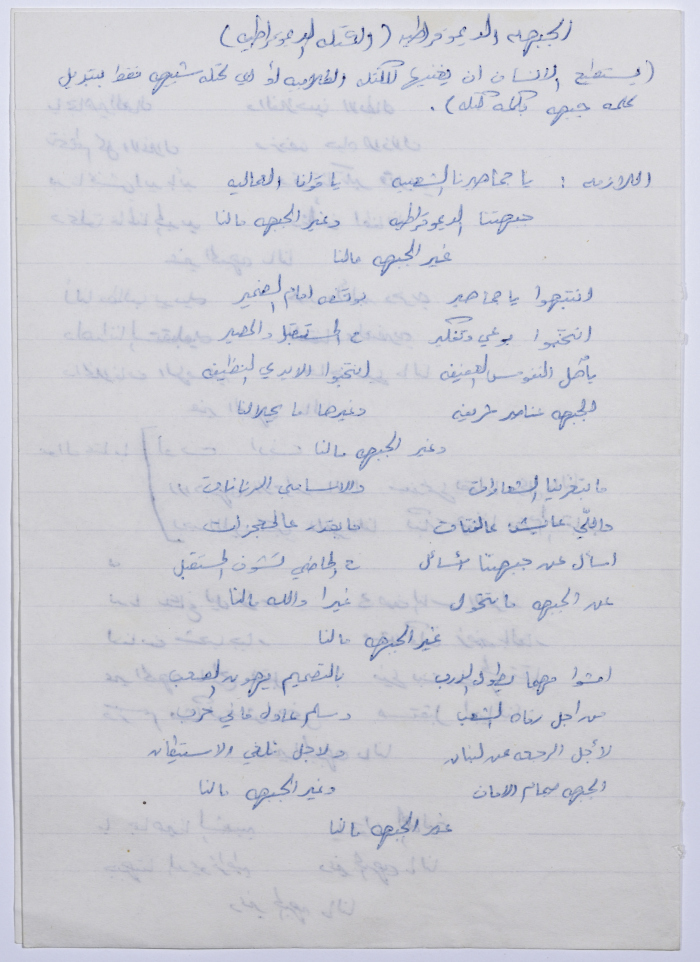 الجبهه الديموقراطيه (والكتله الديموقراطيه)
(يستطيع الانسان ان يغنيها للكتله الطلابيه أو لأي كتله شبيهه فقط بتبديل
كلمه جبهه بكلمه كتله).
اللازمه : يا جماهيرنا الشعبيه يا قوانا العماليه
جبهتنا الديموقراطيه وغير الجبهه مالنا
غير الجبهه مالنا
انتبهوا يا جماهير بوقفه امام الضمير
انتخبوا بوعي وتفكير ع المستقبل والمصير
يأهل النفوس العفيفه انتخبوا الايدي النظيفه
الجبهه عناصر شريفه وغيرها ما بيحلالنا
وغير الجبهه مالنا
ما بتغرينا الشعارات والاسامي الرنانات
واللّي عايش عالفتات ما بقدر عالمعجزات
اسأل عن جبهتنا لأسأل ع الماضي تشوف المستقبل
عن الجبهه ما بتحول غيرا والله مالنا
غير الجبهه مالنا
امشوا مهما يطول الدرب بالتصميم يهون الصعب
من اجل رفاه الشعب وسلم عادل مافي حرب
لأجل الرجعه عن لبنان ولاجل نلغي الاستيطان
الجبهه صمام الامان وغير الجبهه مالنا
غير الجبهه مالنا